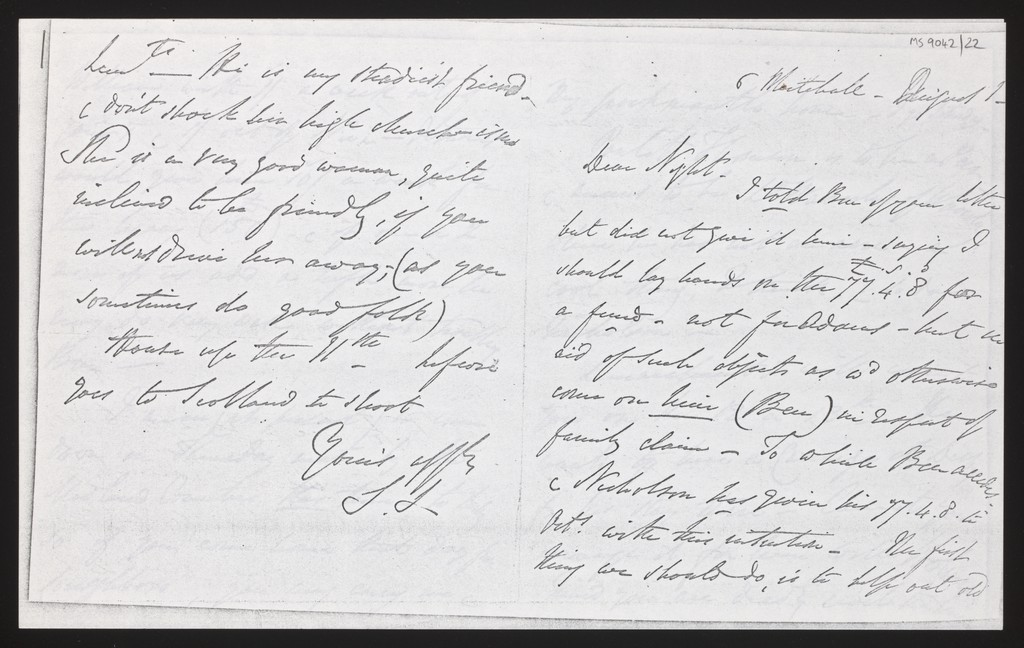 MS 9042/22
6 Whitehall - August 1 -
Dear Night -
I told Ben of your letter
but did not give it him - saying I
should lay hands on the £77.4.8 for
a fund - not for Adams - but in
aid of such objects as wd otherwise
come on him (Ben) in respect of
family claim - To which Ben accedes
& Nicholson has given his 77.4.8. to
with this intention - The first
thing we should do, is to help out old
is my steadiest friend -
& don't shock her high church
She is a very good woman, quite
inclined to be friendly, if you
will not drive her away - (as you
sometimes do good folk)
House up the 11th -
goes to Scotland to shoot
Yours affly